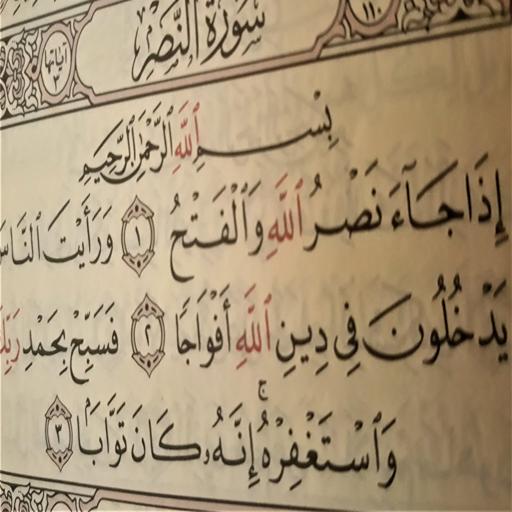 سُورَةُ ٱلنَّصْرِ
١١٠
آياتها
٣
بِسْمِ ٱللَّهِ ٱلرَّحْمَٰنِ ٱلرَّحِيمِ
إِذَا جَآءَ نَصْرُ ٱللَّهِ وَٱلْفَتْحُ ١ وَرَأَيْتَ ٱلنَّاسَ
يَدْخُلُونَ فِى دِينِ ٱللَّهِ أَفْوَاجًا ٢ فَسَبِّحْ بِحَمْدِ رَبِّكَ
وَٱسْتَغْفِرْهُ ۚ إِنَّهُۥ كَانَ تَوَّابًۢا ٣